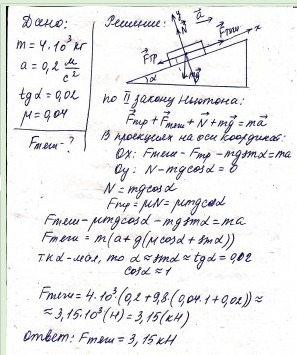 Дано:
m = 4·10³ кг
a = 0,2 м/с²
tgα = 0,02
μ = 0,04
Fтяги - ?
Решение:
y
N
a
Fтяги
x
Fтр
α
mg
по II закону Ньютона:
Fтр + Fтяги + N + mg = ma
В проекциях на оси координат:
Ox: Fтяги - Fтр - mgsinα = ma
Oy: N - mgcosα = 0
N = mgcosα
Fтр = μN = μmgcosα
Fтяги - μmgcosα - mgsinα = ma
Fтяги = m(a + g(μcosα + sinα))
т.к α - мал, то α ≈ sinα ≈ tgα = 0,02
cosα ≈ 1
Fтяги = 4·10³(0,2 + 9,8(0,04·1 + 0,02)) ≈
≈ 3,15·10³(Н) = 3,15(кН)
ответ: Fтяги = 3,15 кН